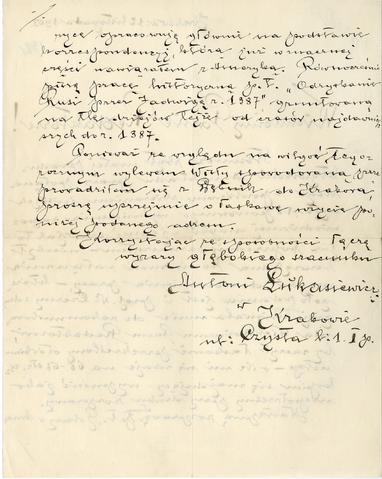 nyce opracowuję głównie na podstawie
korrespondencyi, którą już w znacznej
części nawiązałem z Ameryką. Równocześnie
piszę pracę historyczną p. t. „Odzyskanie
Rusi przez Jadwigę r. 1387" gruntowaną
na tle dziejów tejże od czasów najdawniej-
szych do r. 1387.
Ponieważ ze względu na wilgoć tego-
rocznym wylewem Wisły spowodowaną prze-
prowadziłem się z do Krakowa
proszę uprzejmie o łaskawe użycie po-
niżej podanego adresu.
Korzystając ze sposobności łączę
wyrazy głębokiego szacunku
Antoni Łukasiewicz
w
Krakowie
ul: Czysta l: 1. I p.